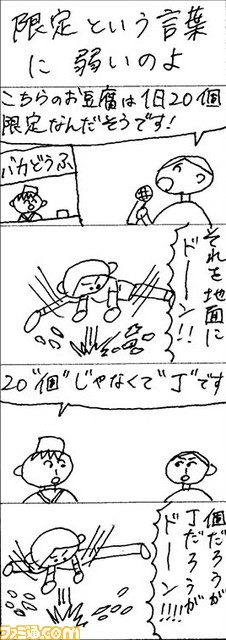 限定という言葉
に弱いのよ
こちらのお豆腐は1日20個
限定なんだそうです!
バカどうふ
それを地面に
ドーン!!
20"個"じゃなくて"丁"です
個だろうが
丁だろうが
ドーン!!!!
ファミ通.com